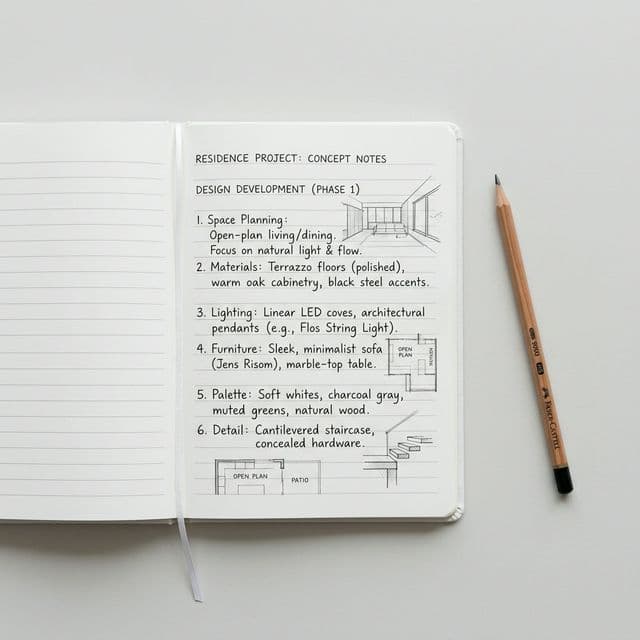 RESIDENCE PROJECT: CONCEPT NOTES
DESIGN DEVELOPMENT (PHASE 1)
1. Space Planning:
Open-plan living/dining.
Focus on natural light & flow.
2. Materials: Terrazzo floors (polished),
warm oak cabinetry, black steel accents.
3. Lighting: Linear LED coves, architectural
pendants (e.g., Flos String Light).
4. Furniture: Sleek, minimalist sofa
(Jens Risom), marble-top table.
OPEN
PLAN
5. Palette: Soft whites, charcoal gray,
muted greens, natural wood.
6. Detail: Cantilevered staircase,
concealed hardware.
OPEN PLAN
PATIO